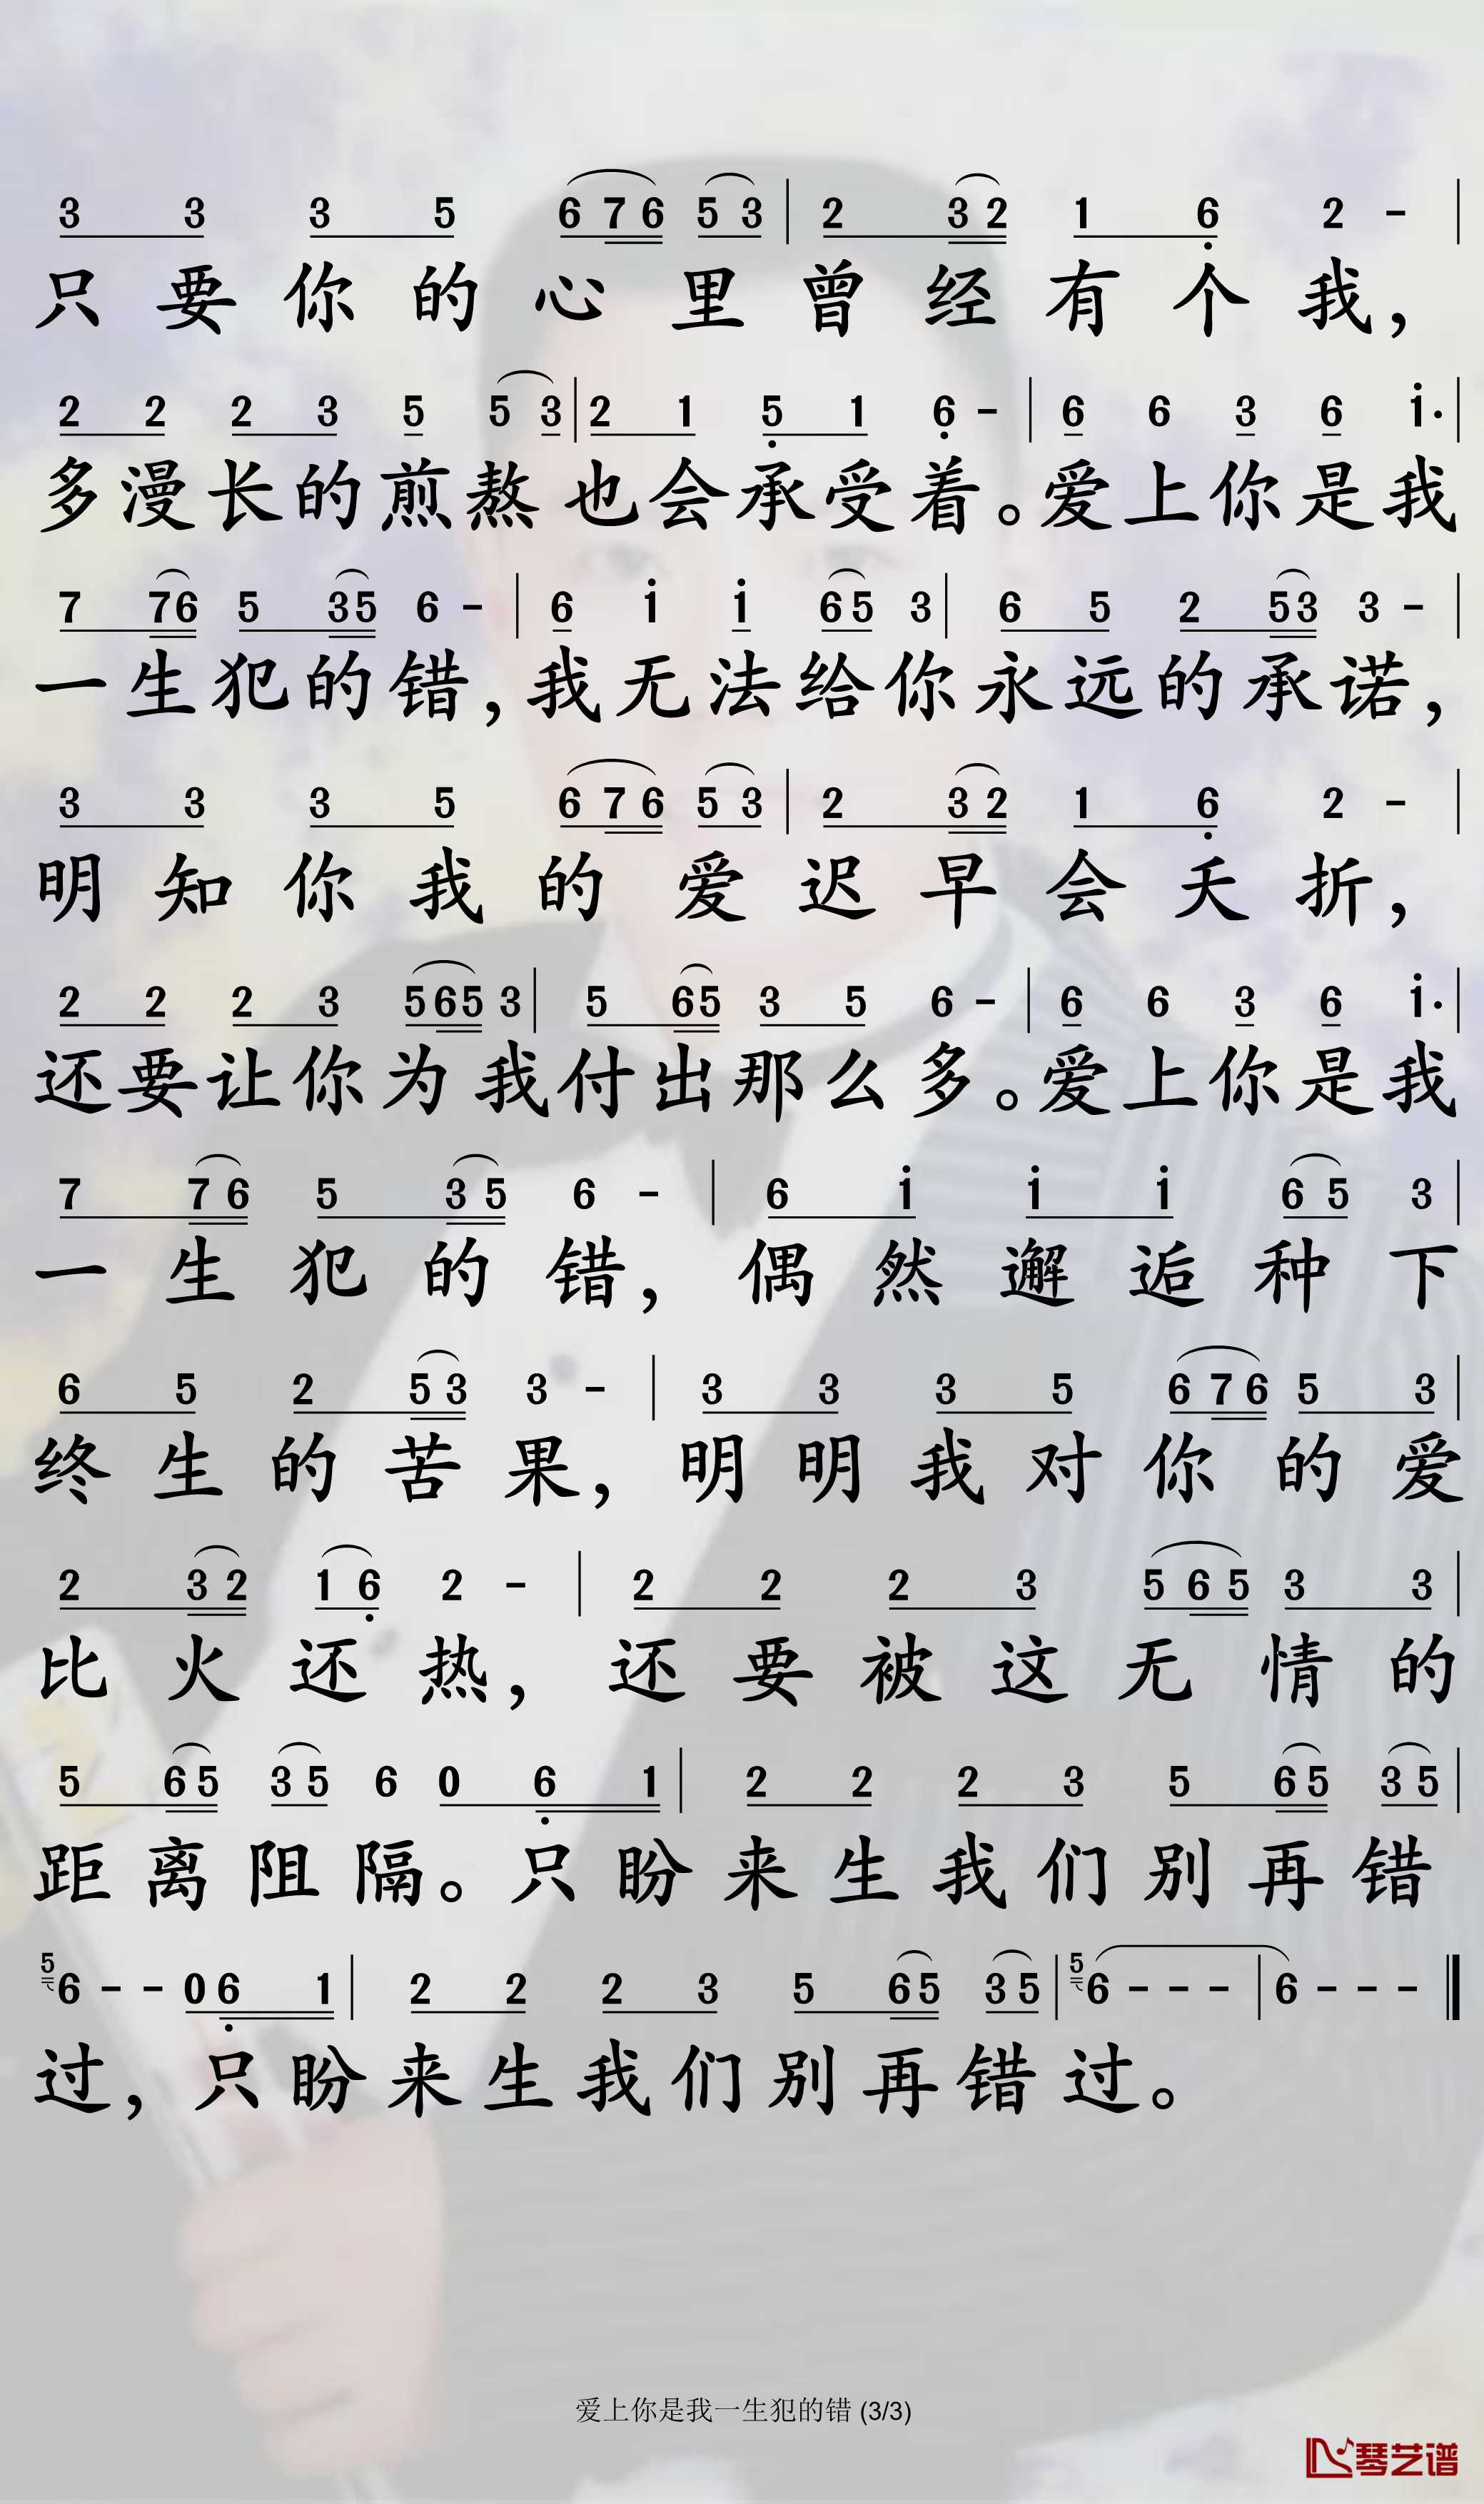 3 3 3 5 6 7 6 5 3 | 2 3 2 1 6 2 - |
只要你的心里曾经有个我，
2 2 2 3 5 5 3 | 2 1 5 1 6 - | 6 6 3 6 i· |
多漫长的煎熬也会承受着。爱上你是我
7 7 6 5 3 5 6 - | 6 i i 6 5 3 | 6 5 2 5 3 3 - |
一生犯的错，我无法给你永远的承诺，
3 3 3 5 6 7 6 5 3 | 2 3 2 1 6 2 - |
明知你我的爱迟早会夭折，
2 2 2 3 5 6 5 3 | 5 6 5 3 5 6 - | 6 6 3 6 i· |
还要让你为我付出那么多。爱上你是我
7 7 6 5 3 5 6 - | 6 i i i 6 5 3 |
一生犯的错，偶然邂逅种下
6 5 2 5 3 3 - | 3 3 3 5 6 7 6 5 3 |
终生的苦果，明明我对你的爱
2 3 2 1 6 2 - | 2 2 2 3 5 6 5 3 3 |
比火还热，还要被这无情的
5 6 5 3 5 6 0 6 1 | 2 2 2 3 5 6 5 3 5 |
距离阻隔。只盼来生我们别再错
5 6 - - 0 6 1 | 2 2 2 3 5 6 5 3 5 | 5 6 - - - | 6 - - - ‖
过，只盼来生我们别再错过。
爱上你是我一生犯的错 (3/3)
琴艺谱